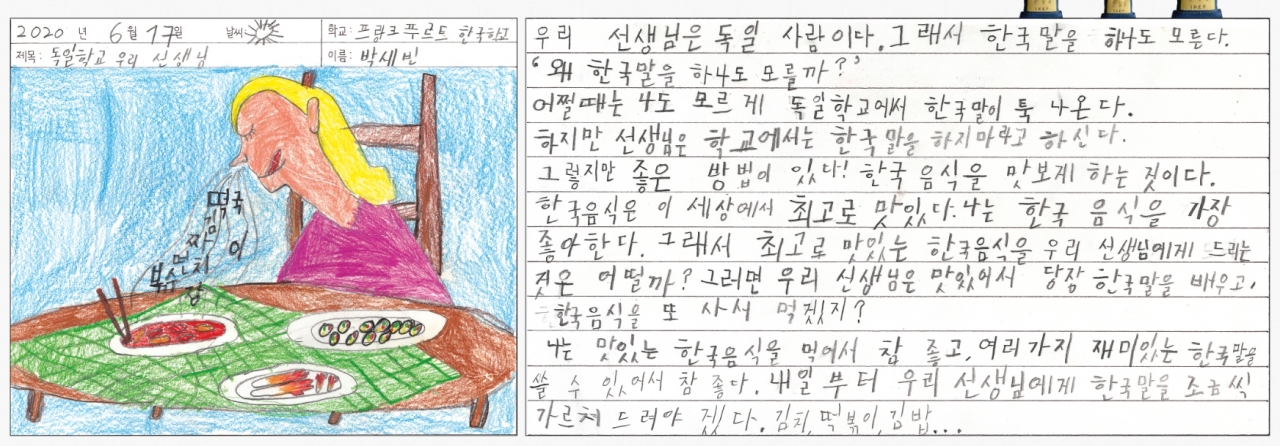 2020 년 6월 17일 날씨:
학교: 프랑크푸르트 한국학교
제목: 독일학교 우리 선생님
이름: 박세빈
떡국
김
짜
면
이
치
복수
잡
우리 선생님은 독일 사람이다.그래서 한국말을 하나도 모른다.
‘왜 한국말을 하나도 모를까?’
어쩔때는 나도 모르게 독일학교에서 한국말이 툭 나온다.
하지만 선생님은 학교에서는 한국말을 하지마라고 하신다.
그렇지만 좋은 방법이 있다! 한국 음식을 맛보게 하는 것이다.
한국음식은 이 세상에서 최고로 맛있다.나는 한국 음식을 가장
좋아한다. 그래서 최고로 맛있는 한국음식을 우리 선생님에게 드리는
것은 어떨까? 그러면 우리 선생님은 맛있어서 당장 한국말을 배우고,
한국음식을 또 사서 먹겠지?
나는 맛있는 한국음식을 먹어서 참 좋고,여러가지 재미있는 한국말을
쓸 수 있어서 참 좋다. 내일부터 우리 선생님에게 한국말을 조금씩
가르쳐 드려야 겠다. 김치, 떡볶이, 김밥...